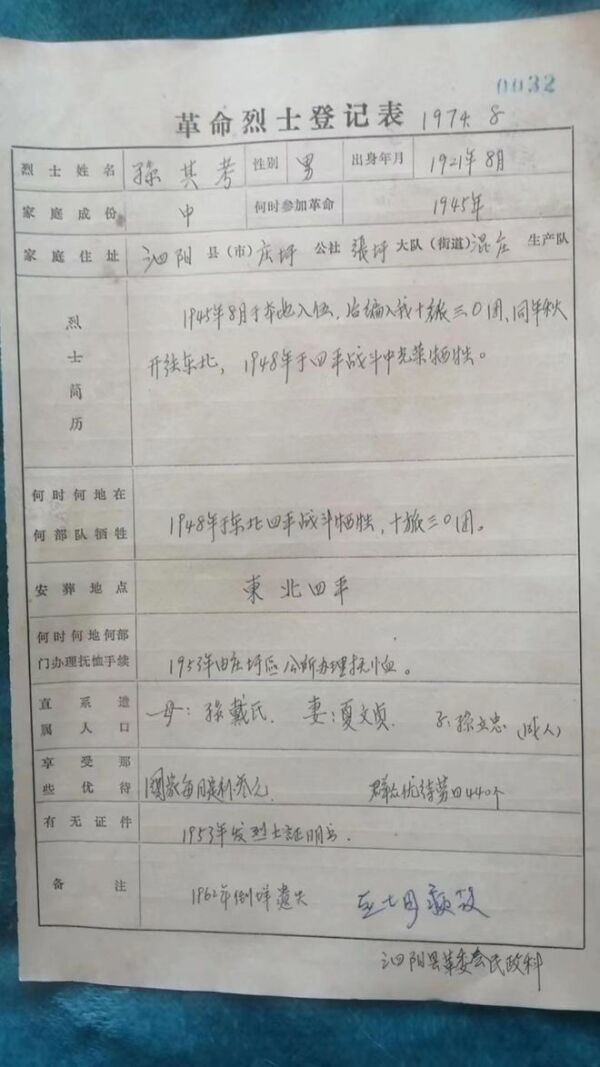 0032
革命烈士登记表 1974.8
烈士姓名 孫其考 性别 男 出身年月 1921年8月
家庭成份 中 何时参加革命 1945年
家庭住址 泗阳 县(市) 庄圩 公社 張圩 大队(街道) 混庄 生产队
烈士简历
1945年8月于本地入伍,后编入我十旅三0团,同年秋
开往东北,1948年于四平战斗中光荣牺牲。
何时何地在
何部队牺牲
1948年于东北四平战斗牺牲,十旅三0团。
安葬地点 東北四平
何时何地何部
门办理抚恤手续
1953年由庄圩区公所办理抚恤。
直系遗
属人口
母:孫戴氏. 妻:夏文贞. 子:孫立忠(成人)
享受那
些优待
國家每月定补叁元. 群众优待 440个
有无证件 1953年发烈士証明书.
备注 1962年倒 遗失
泗阳县革委会民政科